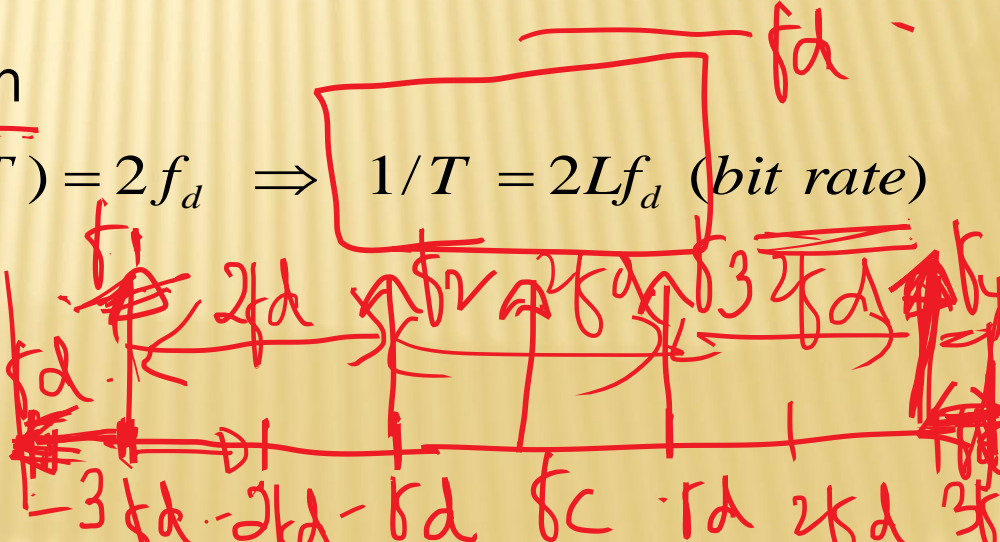 fd
n
T ) = 2 f_d ⇒ 1 / T = 2Lf_d (bit rate)
f1 2fd f2 2fd f3 2fd f4
fd
-3fd -2fd -fd fc fd 2fd 3f